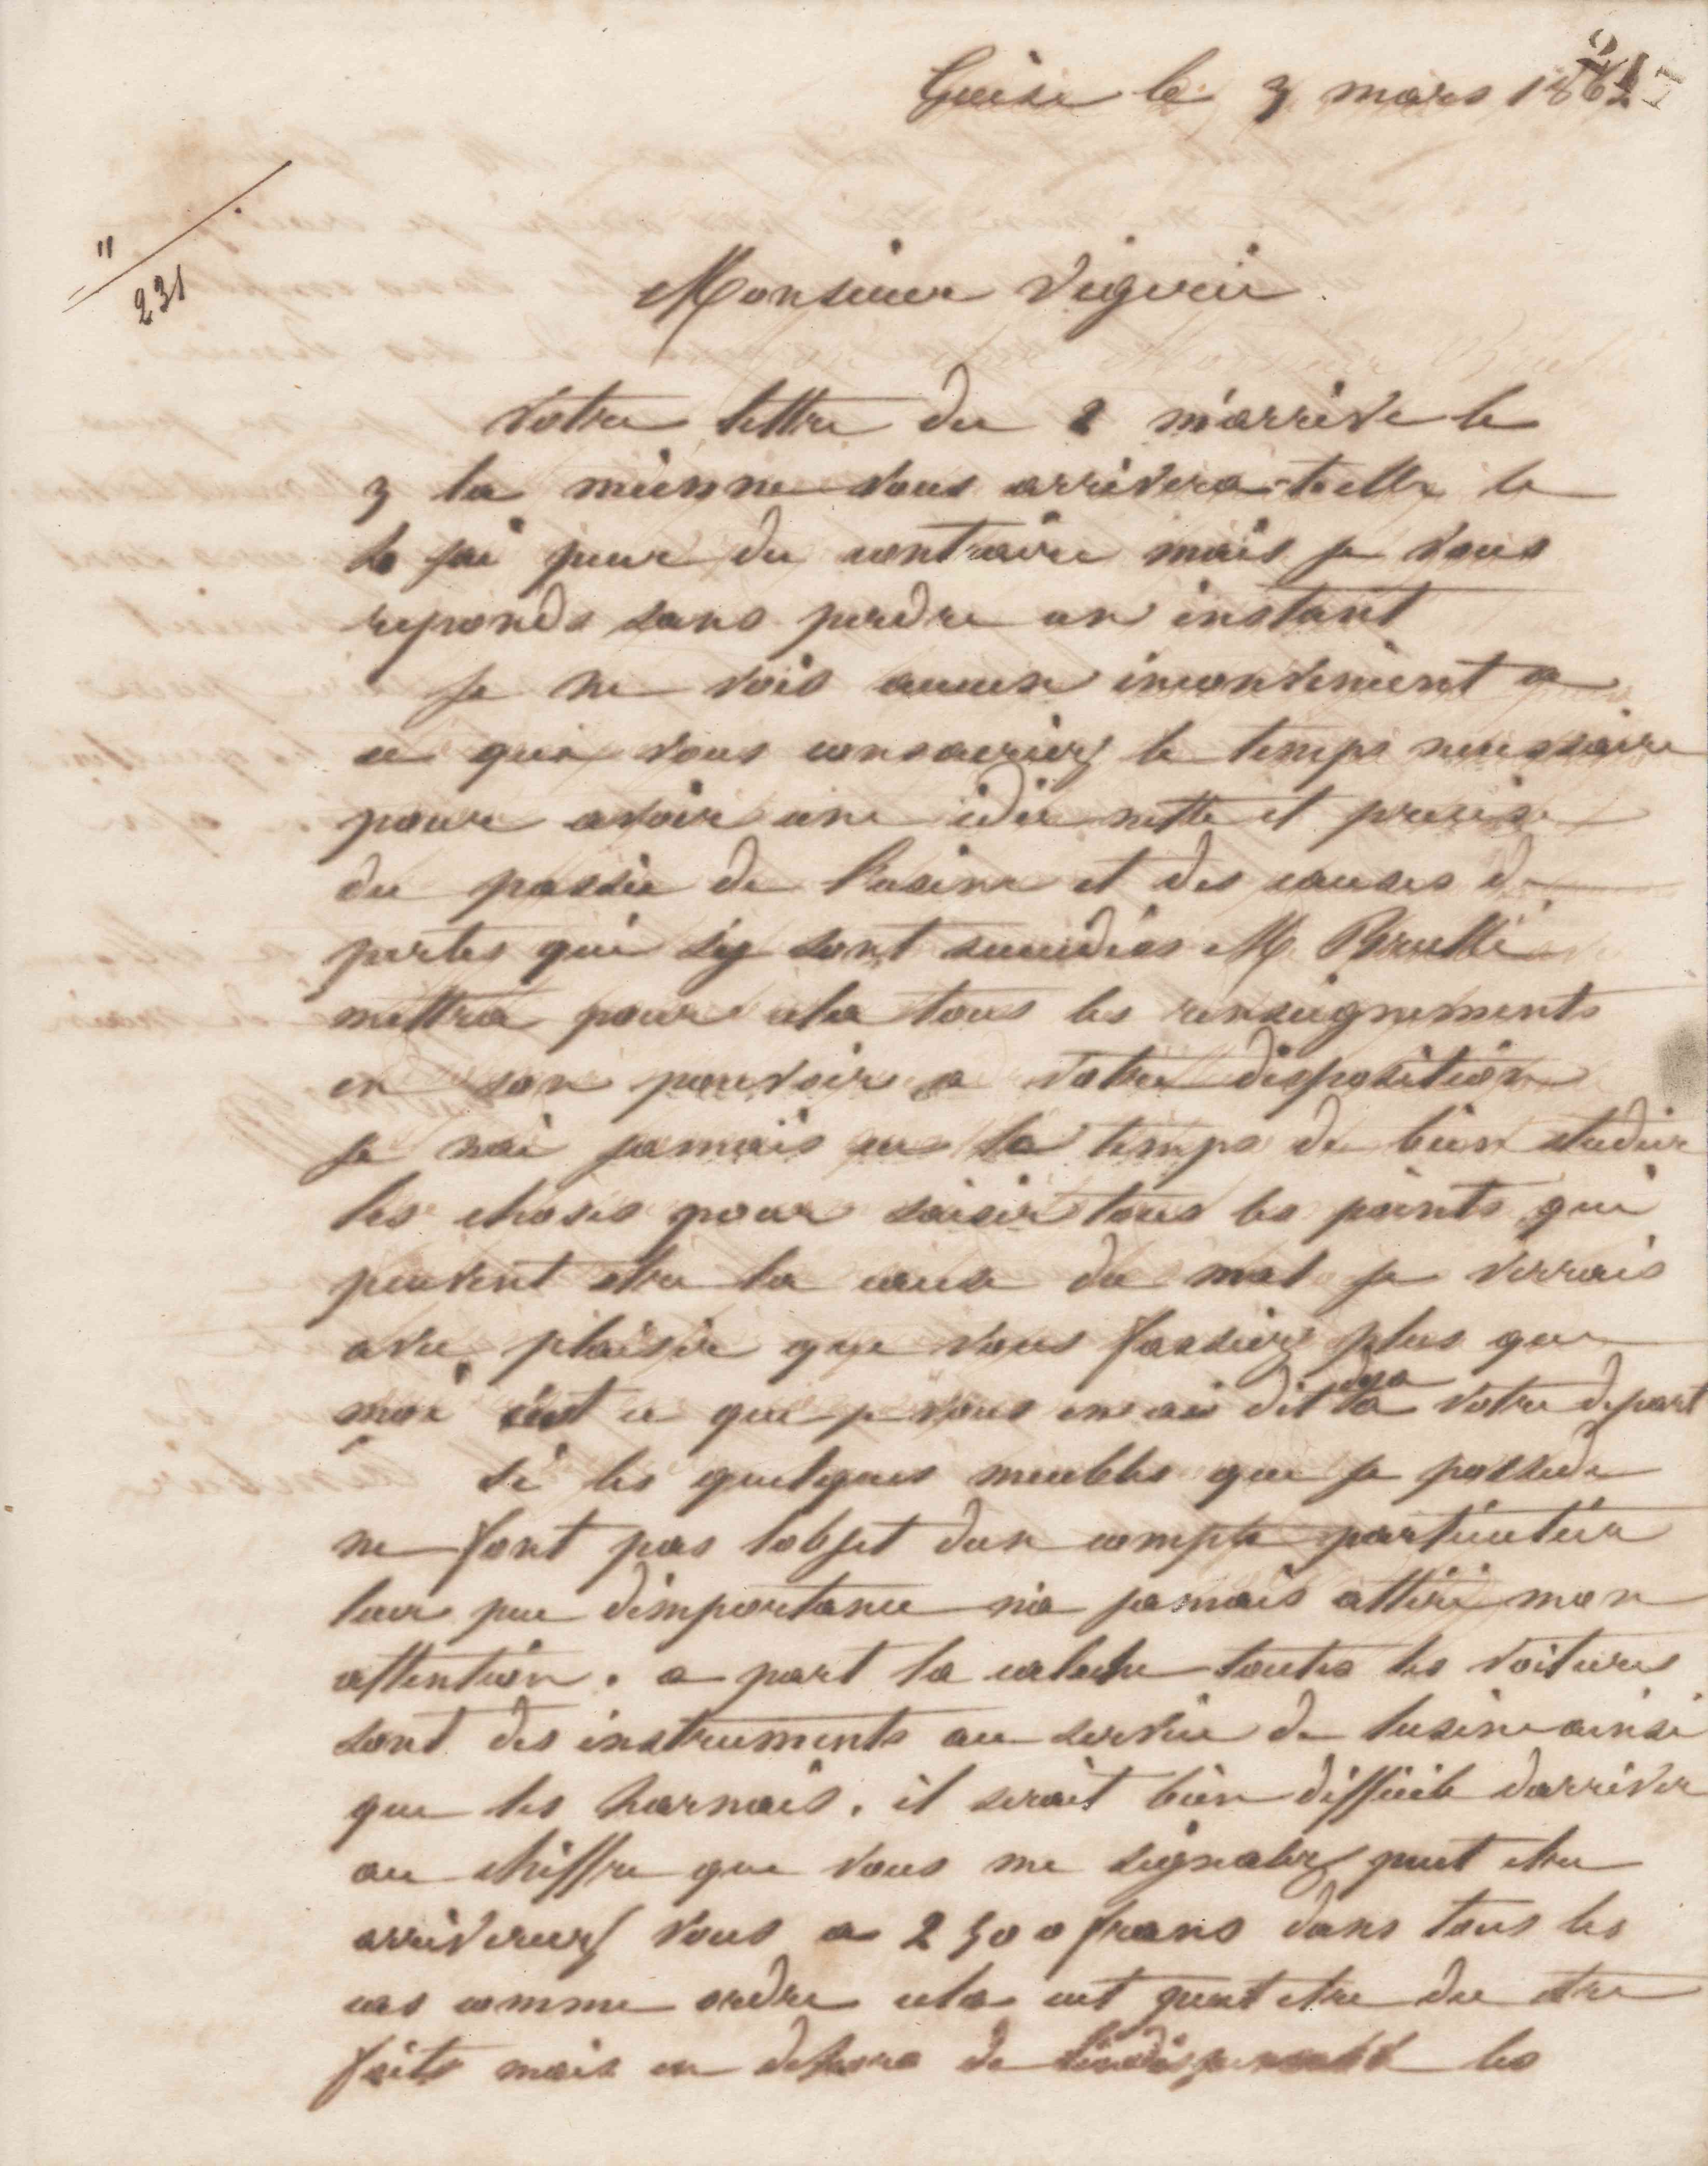 Guise le 3 mars 1862
"
231
Monsieur Vigurie
Votre lettre du 2 m'arrive le
3 la mienne vous arrivera telle le
jai peur du contraire mais je vous
reponds sans perdre un instant
je ne vois aucun inconvenient a
ce que vous consacriez le temps necessaire
pour avoir une idée nette et precise
du passée de l'usine et des causes de
pertes qui sy sont succedées M Brullé
mettra pour cela tous les renseignements
en son pouvoir a votre disposition
je nai jamais eu le temps de bien etudier
les choses pour saisir tous les points qui
peuvent etre la cause du mal je verrais
avec plaisir que vous fassiez plus que
moi cest ce que je vous en ai dit a votre depart
si les quelques meubles que je possede
ne font pas lobjet dun compte particulier
leur peu dimportance na jamais attiré mon
attention. a part la caleche toutes les voitures
sont des instruments au service de lusine ainsi
que les harnais. il serait bien difficile darriver
au chiffre que vous me signalez peut etre
arriverez vous a 2500 francs dans tous les
cas comme ordre cela eut peut etre du etre
faits mais en dehors de les